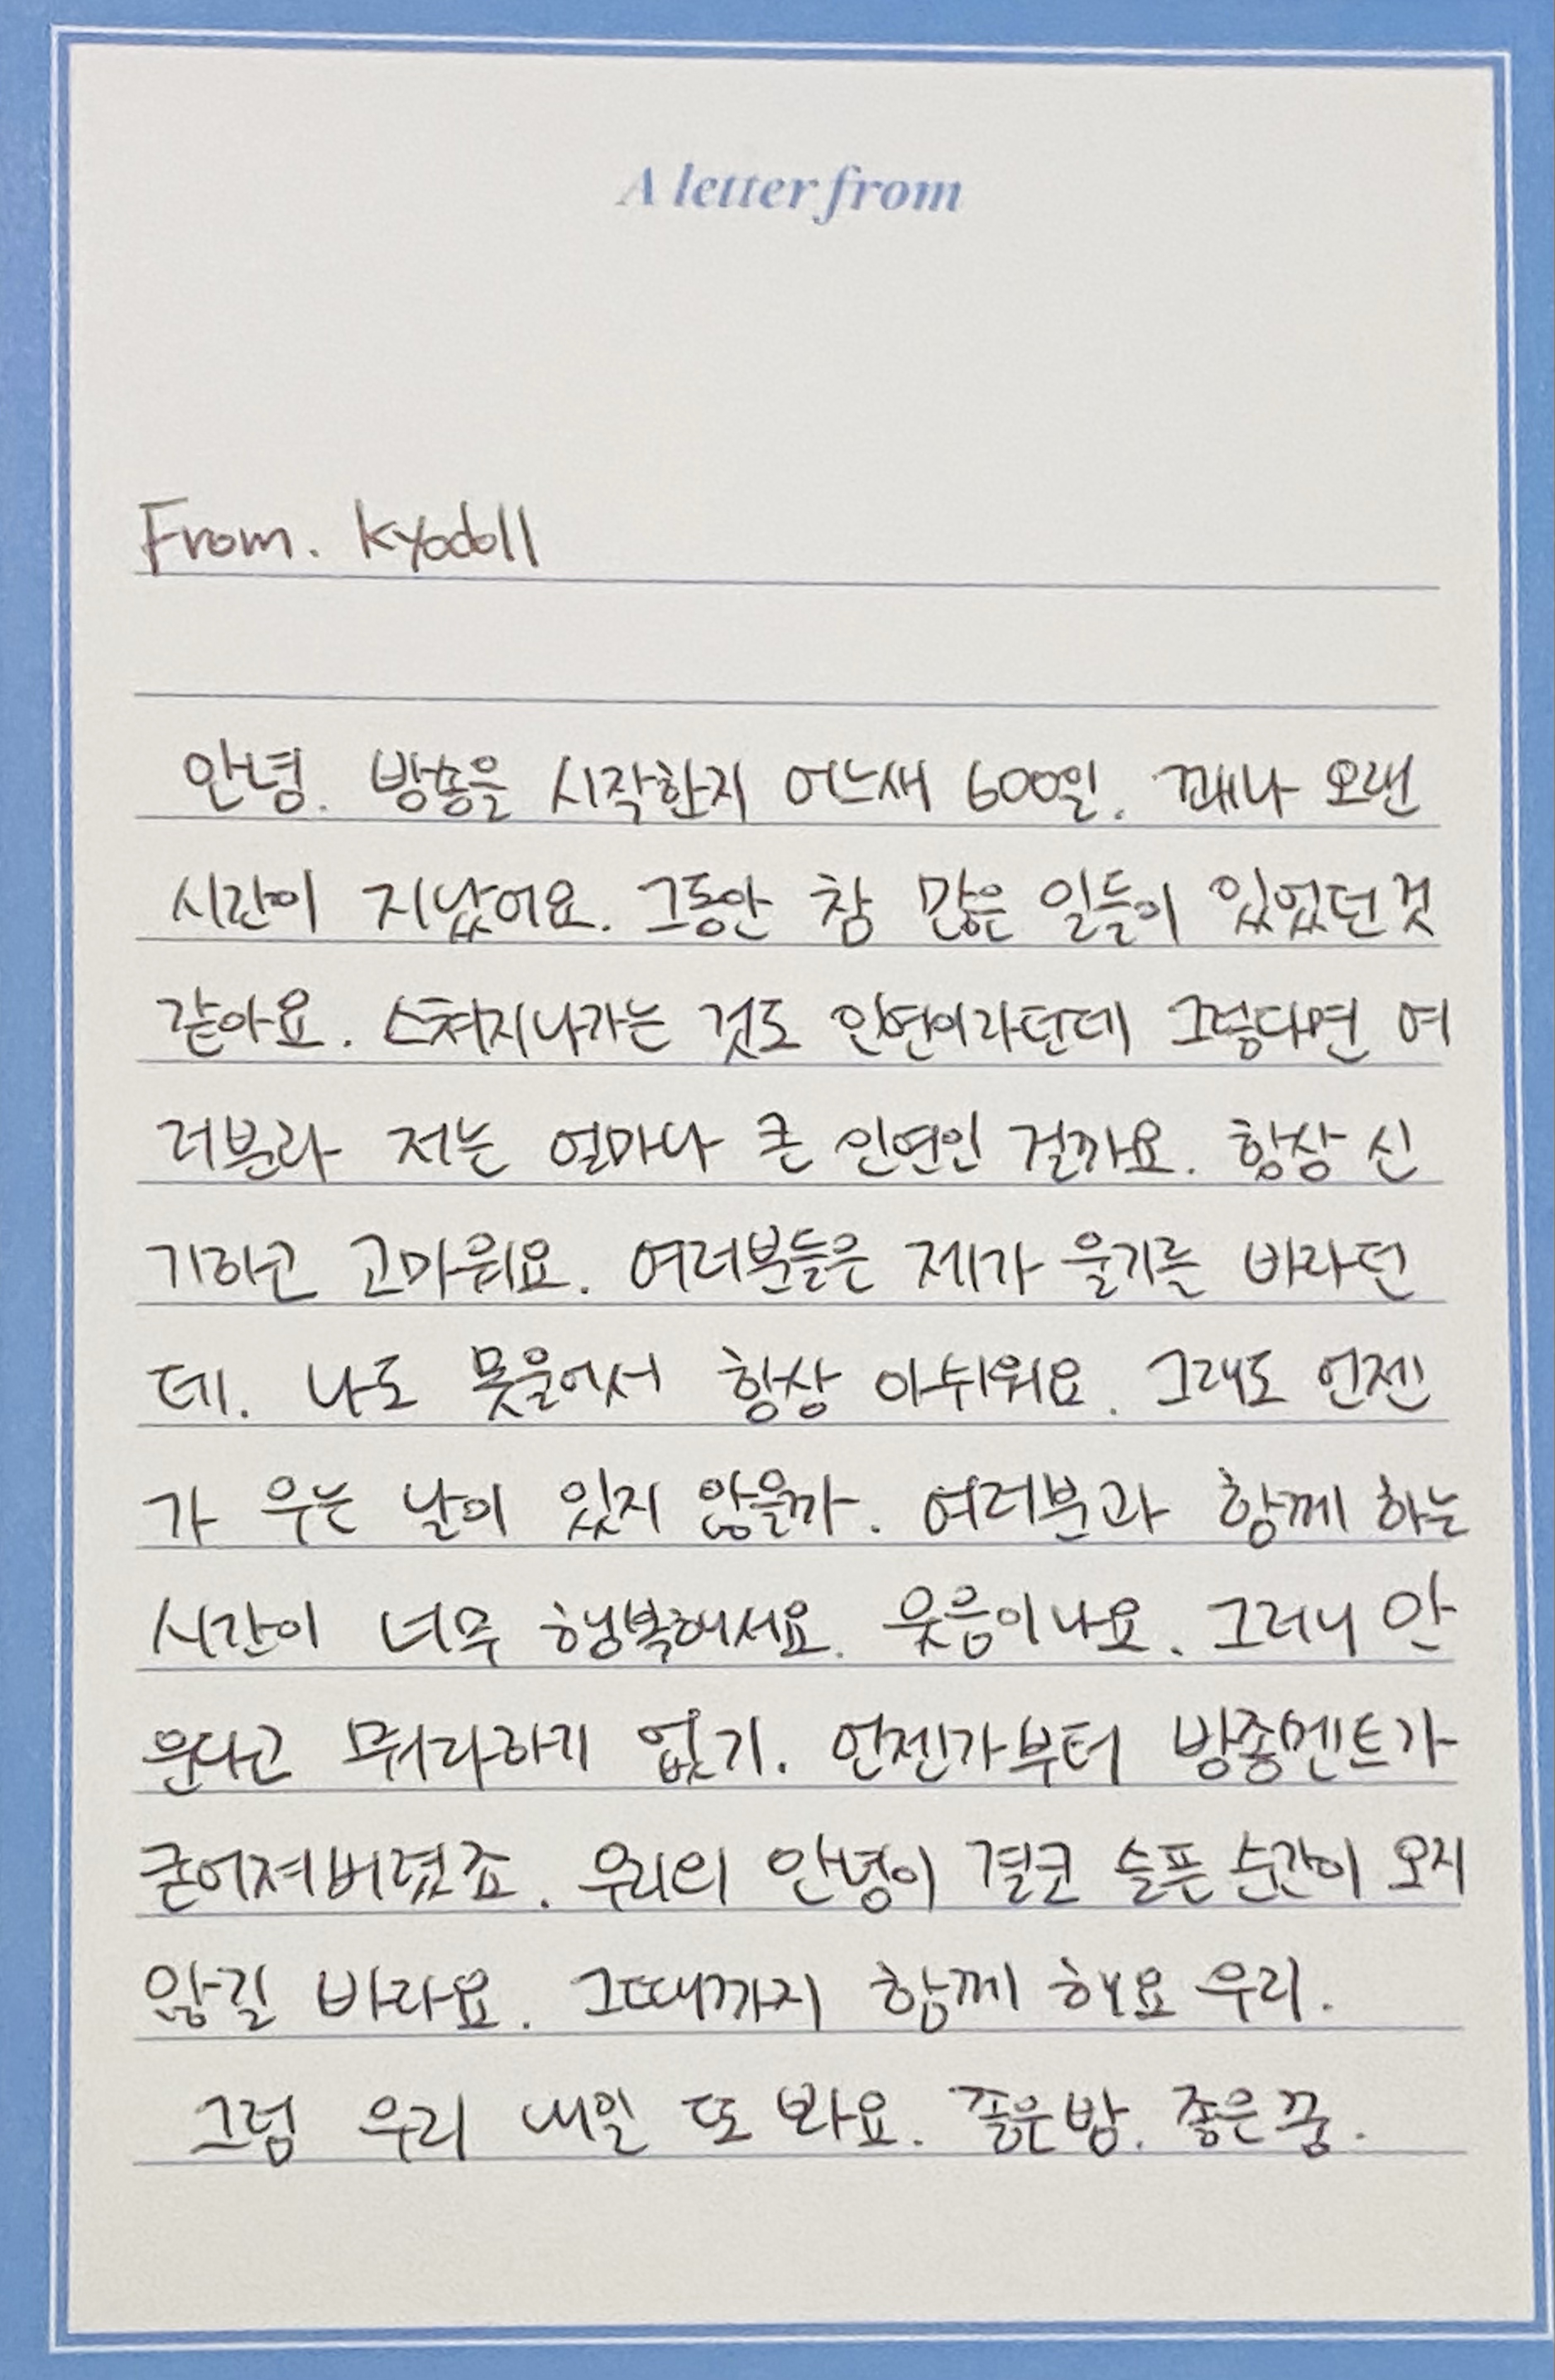 A letter from
From. kyodoll
안녕. 방송을 시작한지 어느새 600일. 꽤나 오랜
시간이 지났어요. 그동안 참 많은 일들이 있었던 것
같아요. 스쳐지나가는 것도 인연이라던데 그렇다면 여
러분과 저는 얼마나 큰 인연인 걸까요. 항상 신
기하고 고마워요. 여러분들은 제가 울기를 바라던
데. 나도 못울어서 항상 아쉬워요. 그래도 언젠
가 우는 날이 있지 않을까. 여러분과 함께 하는
시간이 너무 행복해서요. 웃음이나요. 그러니 안
운다고 뭐라하기 없기. 언젠가부터 방종멘트가
굳어져버렸죠. 우리의 안녕이 결코 슬픈 순간이 오지
않길 바라요. 그때까지 함께 해요 우리.
그럼 우리 내일 또 봐요. 좋은밤. 좋은꿈.